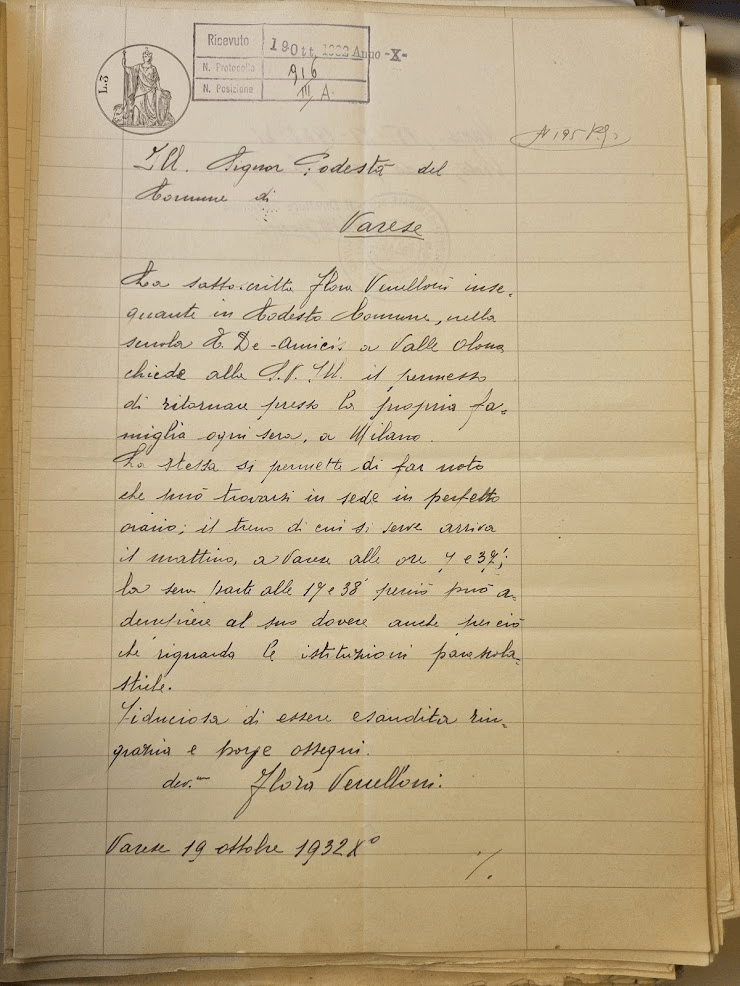 L.3
Ricevuto 19 Ott. 1932 Anno -X-
N. Protocollo 916
N. Posizione III A.
Ill. Signor Podestà del
Comune di
Varese
La sottoscritta Flora Venelloni inse-
gnante in Codesto Comune, nella
scuola E. De-Amicis a Valle Olona
chiede alla S.V. Ill. il permesso
di ritornare presso la propria fa-
miglia ogni sera, a Milano.
La stessa si permette di far noto
che può trovarsi in sede in perfetto
orario; il treno di cui si serve arriva
il mattino, a Varese alle ore 7 e 37';
la sera parte alle 17 e 38' perciò può a-
dempiere al suo dovere anche per ciò
che riguarda le istituzioni parascola-
stiche.
Fiduciosa di essere esaudita rin-
grazia e porge ossequi.
dev.ma Flora Venelloni.
Varese 19 ottobre 1932 X°
./.